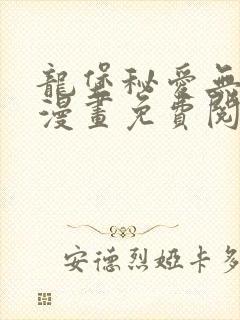 龍堡秘愛無
漫畫免費閱
安德烈婭卡多